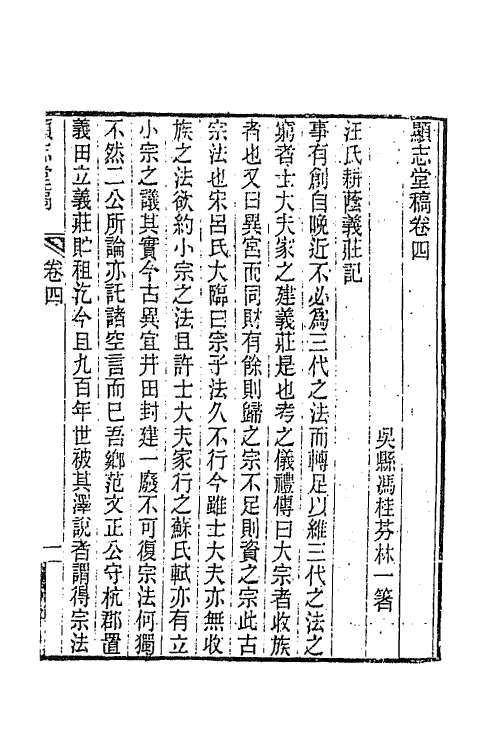 顯志堂稿卷四
吳縣馮桂芬林一箸
汪氏耕蔭義莊記
事有創自晚近不必爲三代之法而轉足以維三代之法之
窮者士大夫家之建義莊是也考之儀禮傳曰大宗者收族
者也又曰異宮而同財有餘則歸之宗不足則資之宗此古
宗法也宋呂氏大臨曰宗子法久不行今雖士大夫亦無收
族之法欲約小宗之法且許士大夫家行之蘇氏軾亦有立
小宗之議其實今古異宜井田封建一廢不可復宗法何獨
不然二公所論亦託諸空言而已吾鄉范文正公守杭郡置
義田立義莊貯租汔今且九百年世被其澤說者謂得宗法
顯志堂稿
卷四
一